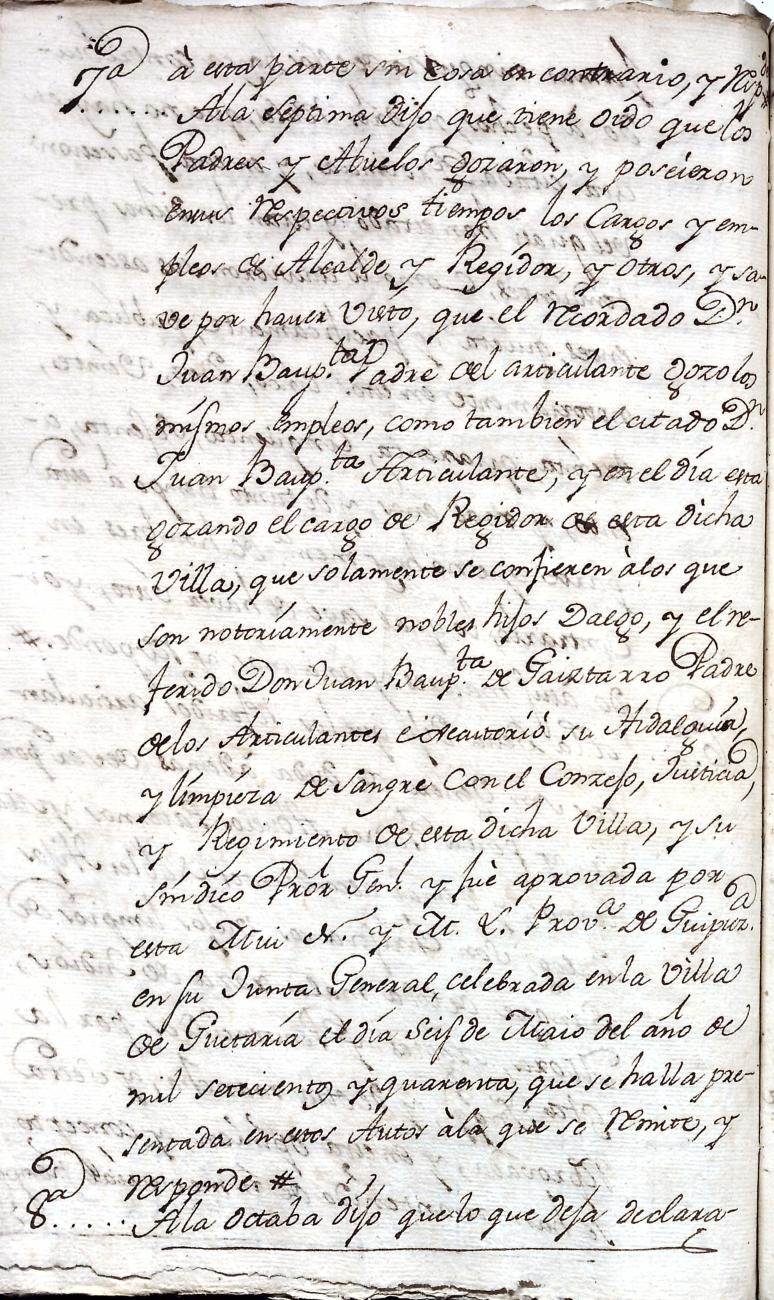 à esta parte sin cosa en contrario, y Resp.de #
7.a ..... Ala septima dijo que tiene oido que los
Padres y Abuelos gozaron, y poseieron
en sus Respectivos tiempos los Cargos y em-
pleos de Alcalde y Regidor, y otros, y sa-
ve por haver visto, que el Recordado D.n
Juan Baup.ta Padre del articulante gozo los
mismos empleos, como tambien el citado D.n
Juan Baup.ta Articulante, y en el día esta
gozando el cargo de Regidor de esta dicha
Villa, que solamente se confieren àlos que
son notoríamente nobles hijos Dalgo, y el re-
ferido Don Juan Baup.ta de Gaiztarro Padre
delos Articulantes executorió su Hidalguia,
y límpieza de sangre con el Conzejo, Justicia,
y Regimiento de esta dicha Villa, y su
síndico Prôr Gen.l y fuè aprovada por
esta Mui N. y M. L. Prov.a de Guipuz.a
en su Junta General, celebrada en la Villa
de Guetaría el día Seis de Maio del año de
mil setecientos y quarenta, que se halla pre-
sentada en estos Autos àla que se Remite, y
responde. #
8.a ..... Ala octaba dijo que lo que deja declara-